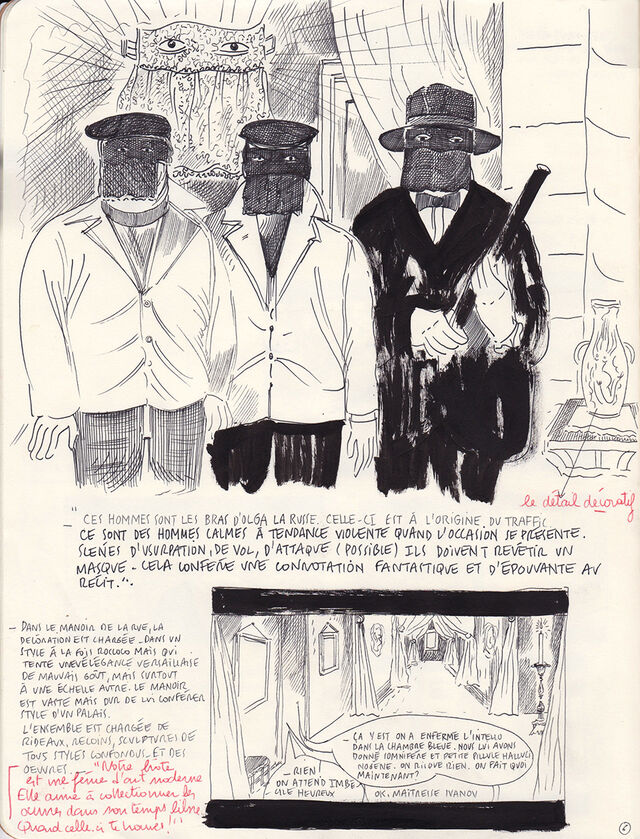 le détail décoratif
" CES HOMMES SONT LES BRAS D'OLGA LA RUSSE. CELLE-CI EST À L'ORIGINE DU TRAFFIC.
CE SONT DES HOMMES CALMES À TENDANCE VIOLENTE QUAND L'OCCASION SE PRÉSENTE.
SCÈNES D'USURPATION, DE VOL, D'ATTAQUE (POSSIBLE) ILS DOIVENT REVÊTIR UN
MASQUE - CELA CONFÈRE UNE CONNOTATION FANTASTIQUE ET D'ÉPOUVANTE AU
RÉCIT.".
- DANS LE MANOIR DE LA RUE, LA
DÉCORATION EST CHARGÉE - DANS UN
STYLE À LA FOIS ROCOCO MAIS QUI
TENTE UNE ÉLÉGANCE VERSAILLAISE
DE MAUVAIS GOÛT, MAIS SURTOUT
À UNE ÉCHELLE AUTRE. LE MANOIR
EST VASTE MAIS DUR DE LUI CONFÉRER
STYLE D'UN PALAIS.
L'ENSEMBLE EST CHARGÉE DE
RIDEAUX, RECOINS, SCULPTURES DE
TOUS STYLES CONFONDUS ET DES
OEUVRES - "Notre hôte
est une férue d'art moderne
Elle aime à collectionner les
œuvres dans son temps libre
Quand celle-ci te
- ÇA Y EST ON A ENFERMÉ L'INTELLO
DANS LA CHAMBRE BLEUE. NOUS LUI AVONS
DONNÉ SOMNIFÈRE ET PETITE PILLULE HALLUCI
NOGÈNE. ON RISQUE RIEN. ON FAIT QUOI
MAINTENANT?
- RIEN!
ON ATTEND IMBÉ
CILE HEUREUX
OK, MAÎTRESSE IVANOV